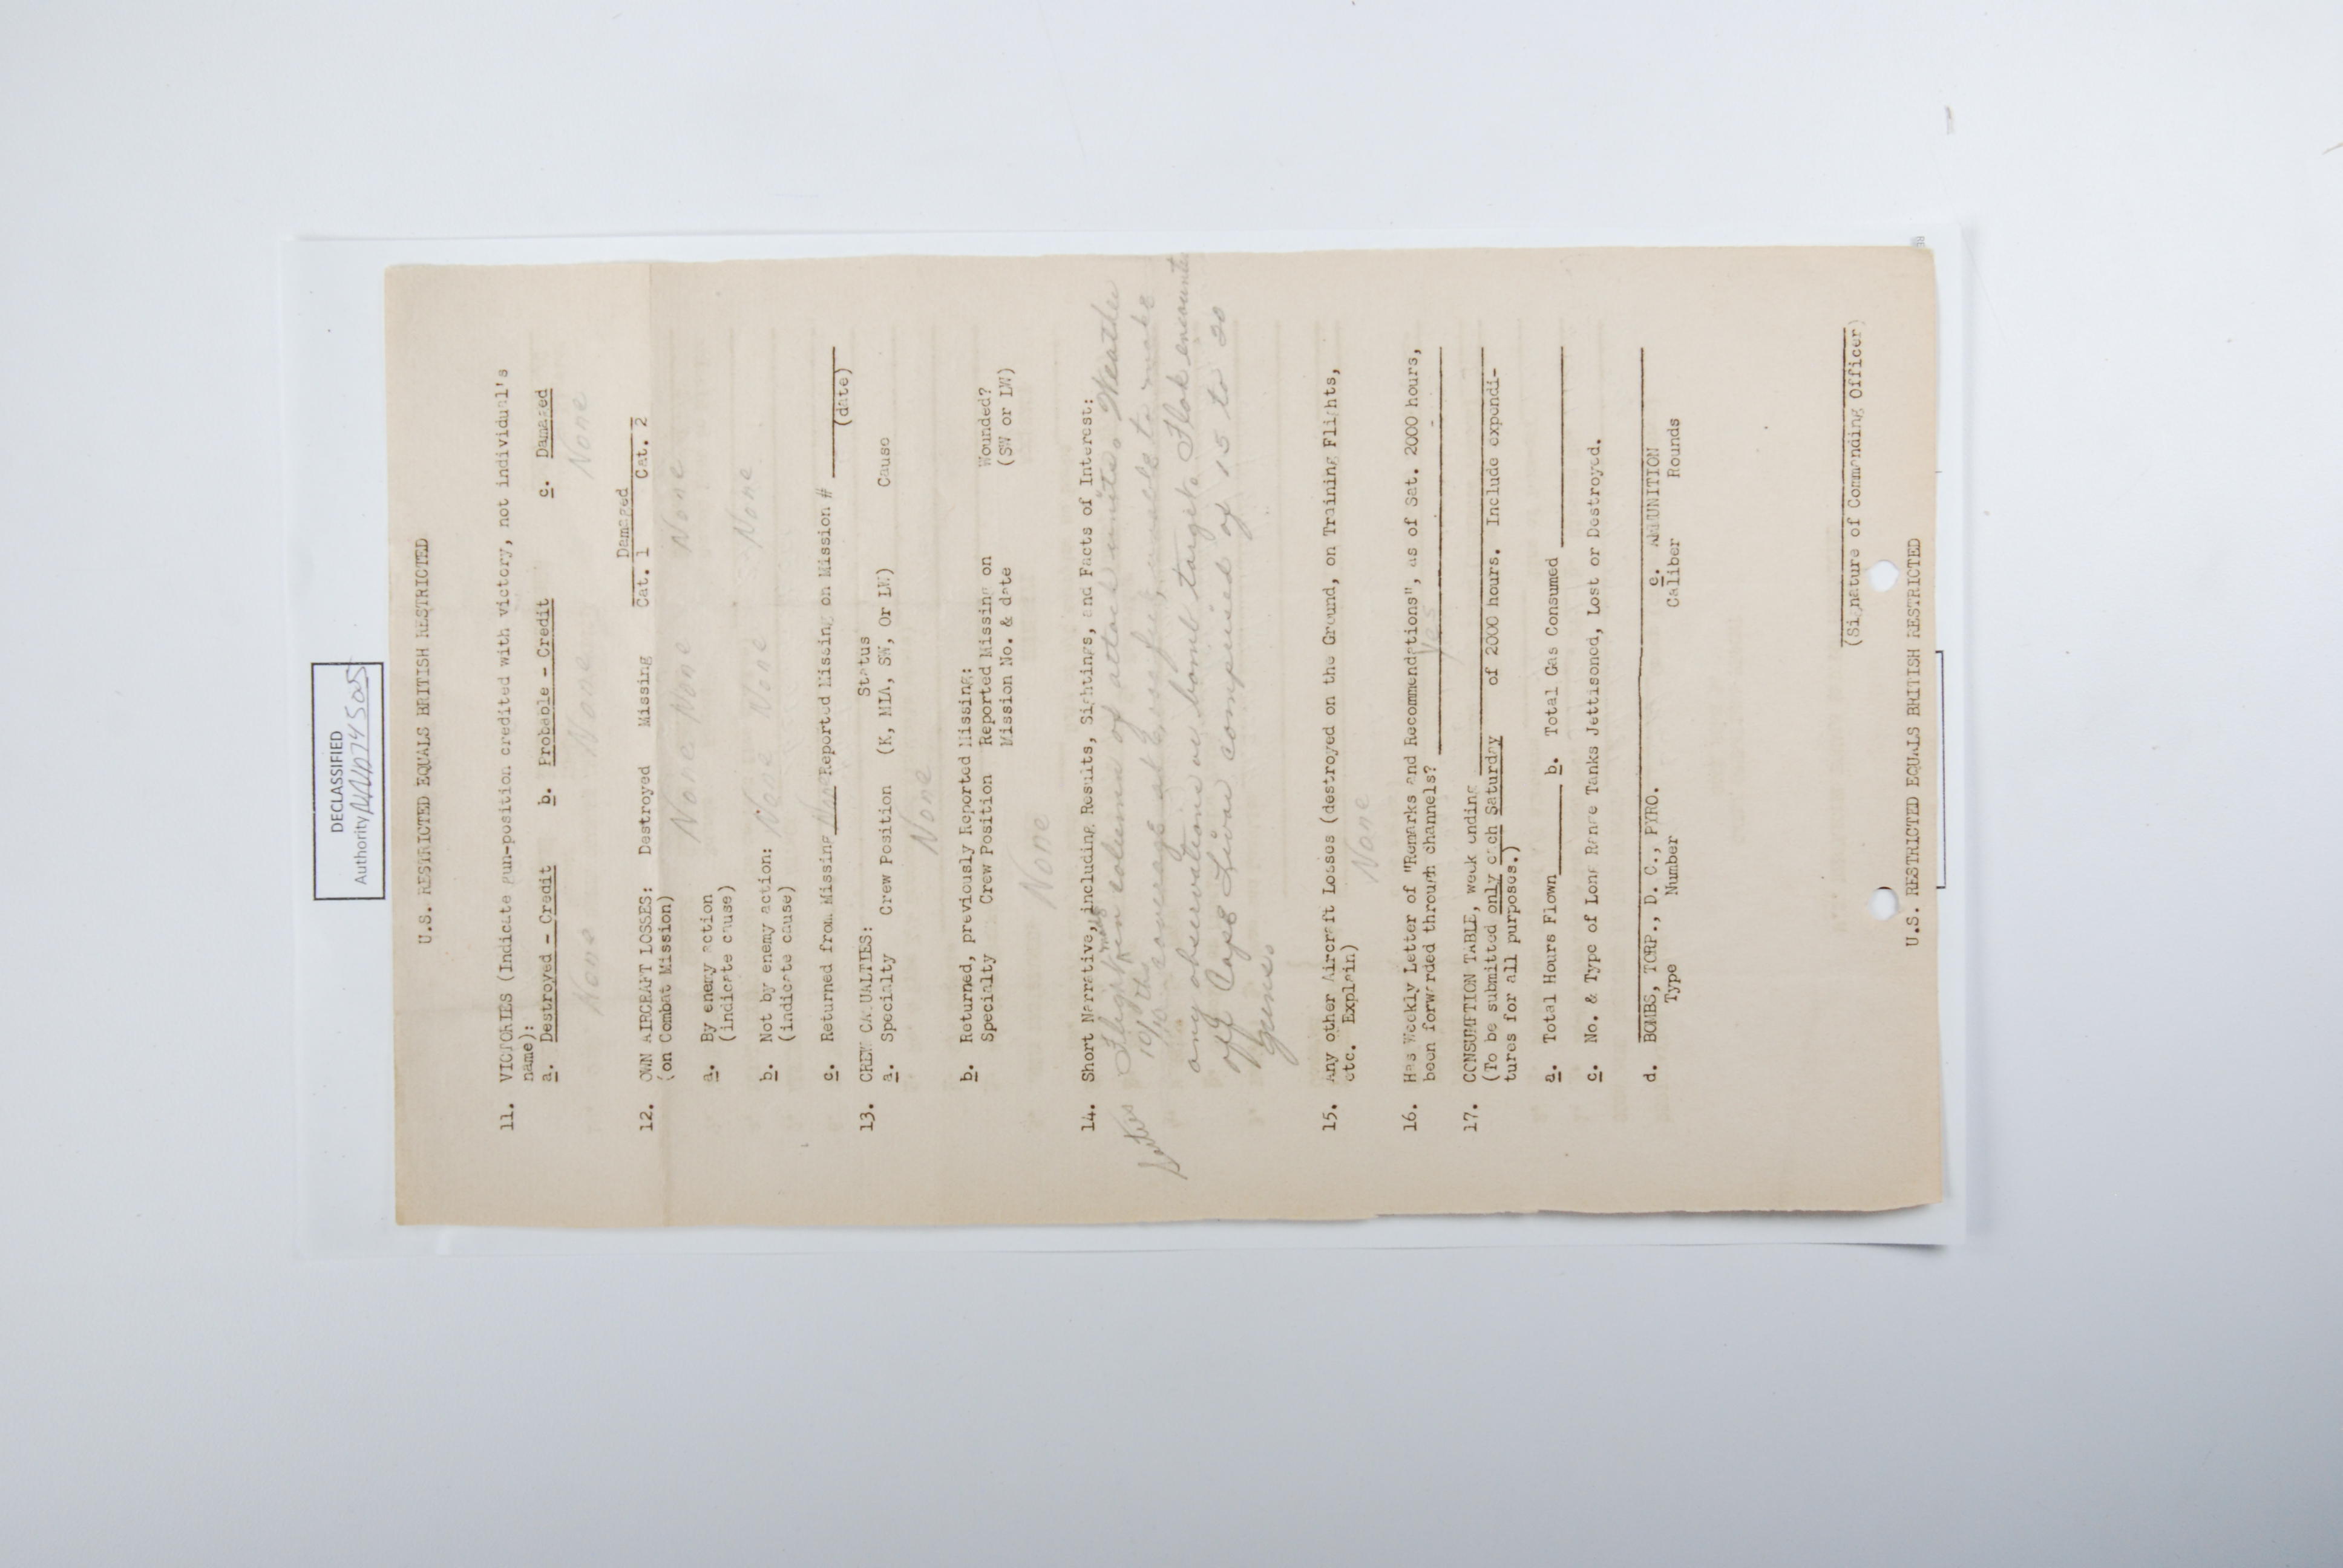 DECLASSIFIED
Authority NND745005
U.S. RESTRICTED EQUALS BRITISH RESTRICTED
11. VICTORIES (Indicate gun-position credited with victory, not individual's
name):
a. Destroyed - Credit b. Probable - Credit c. Damaged
None None None
Damaged
12. OWN AIRCRAFT LOSSES: Destroyed Missing Cat. 1 Cat. 2
(on Combat Mission)
None None None
a. By enemy action
(indicate cause)
b. Not by enemy action: None None None
(indicate cause)
c. Returned from Missing None Reported Missing on Mission #
(date)
13. CREW CASUALTIES: Status
a. Specialty Crew Position (K, MIA, SW, Or LW) Cause
None
b. Returned, previously Reported Missing:
Specialty Crew Position Reported Missing on Wounded?
Mission No. & date (SW or LW)
None
14. Short Narrative, including Results, Sightings, and Facts of Interest:
Flight made in column of attack units. Weather
10/10ths coverage at unable to make
any observations on bomb targets Flak encounte
off Cape Livan comprised of 15 to 20
guns.
15. Any other Aircraft Losses (destroyed on the Ground, on Training Flights,
etc. Explain)
None
16. Has Weekly Letter of "Remarks and Recommendations", as of Sat. 2000 hours,
been forwarded through channels? Yes
17. CONSUMPTION TABLE, week ending of 2000 hours. Include expendi-
(To be submitted only each Saturday
tures for all purposes.)
a. Total Hours Flown b. Total Gas Consumed
c. No. & Type of Long Range Tanks Jettisoned, Lost or Destroyed.
d. BOMBS, TORP., D. C., PYRO. e. AMMUNITION
Type Number Caliber Rounds
(Signature of Commanding Officer)
U.S. RESTRICTED EQUALS BRITISH RESTRICTED